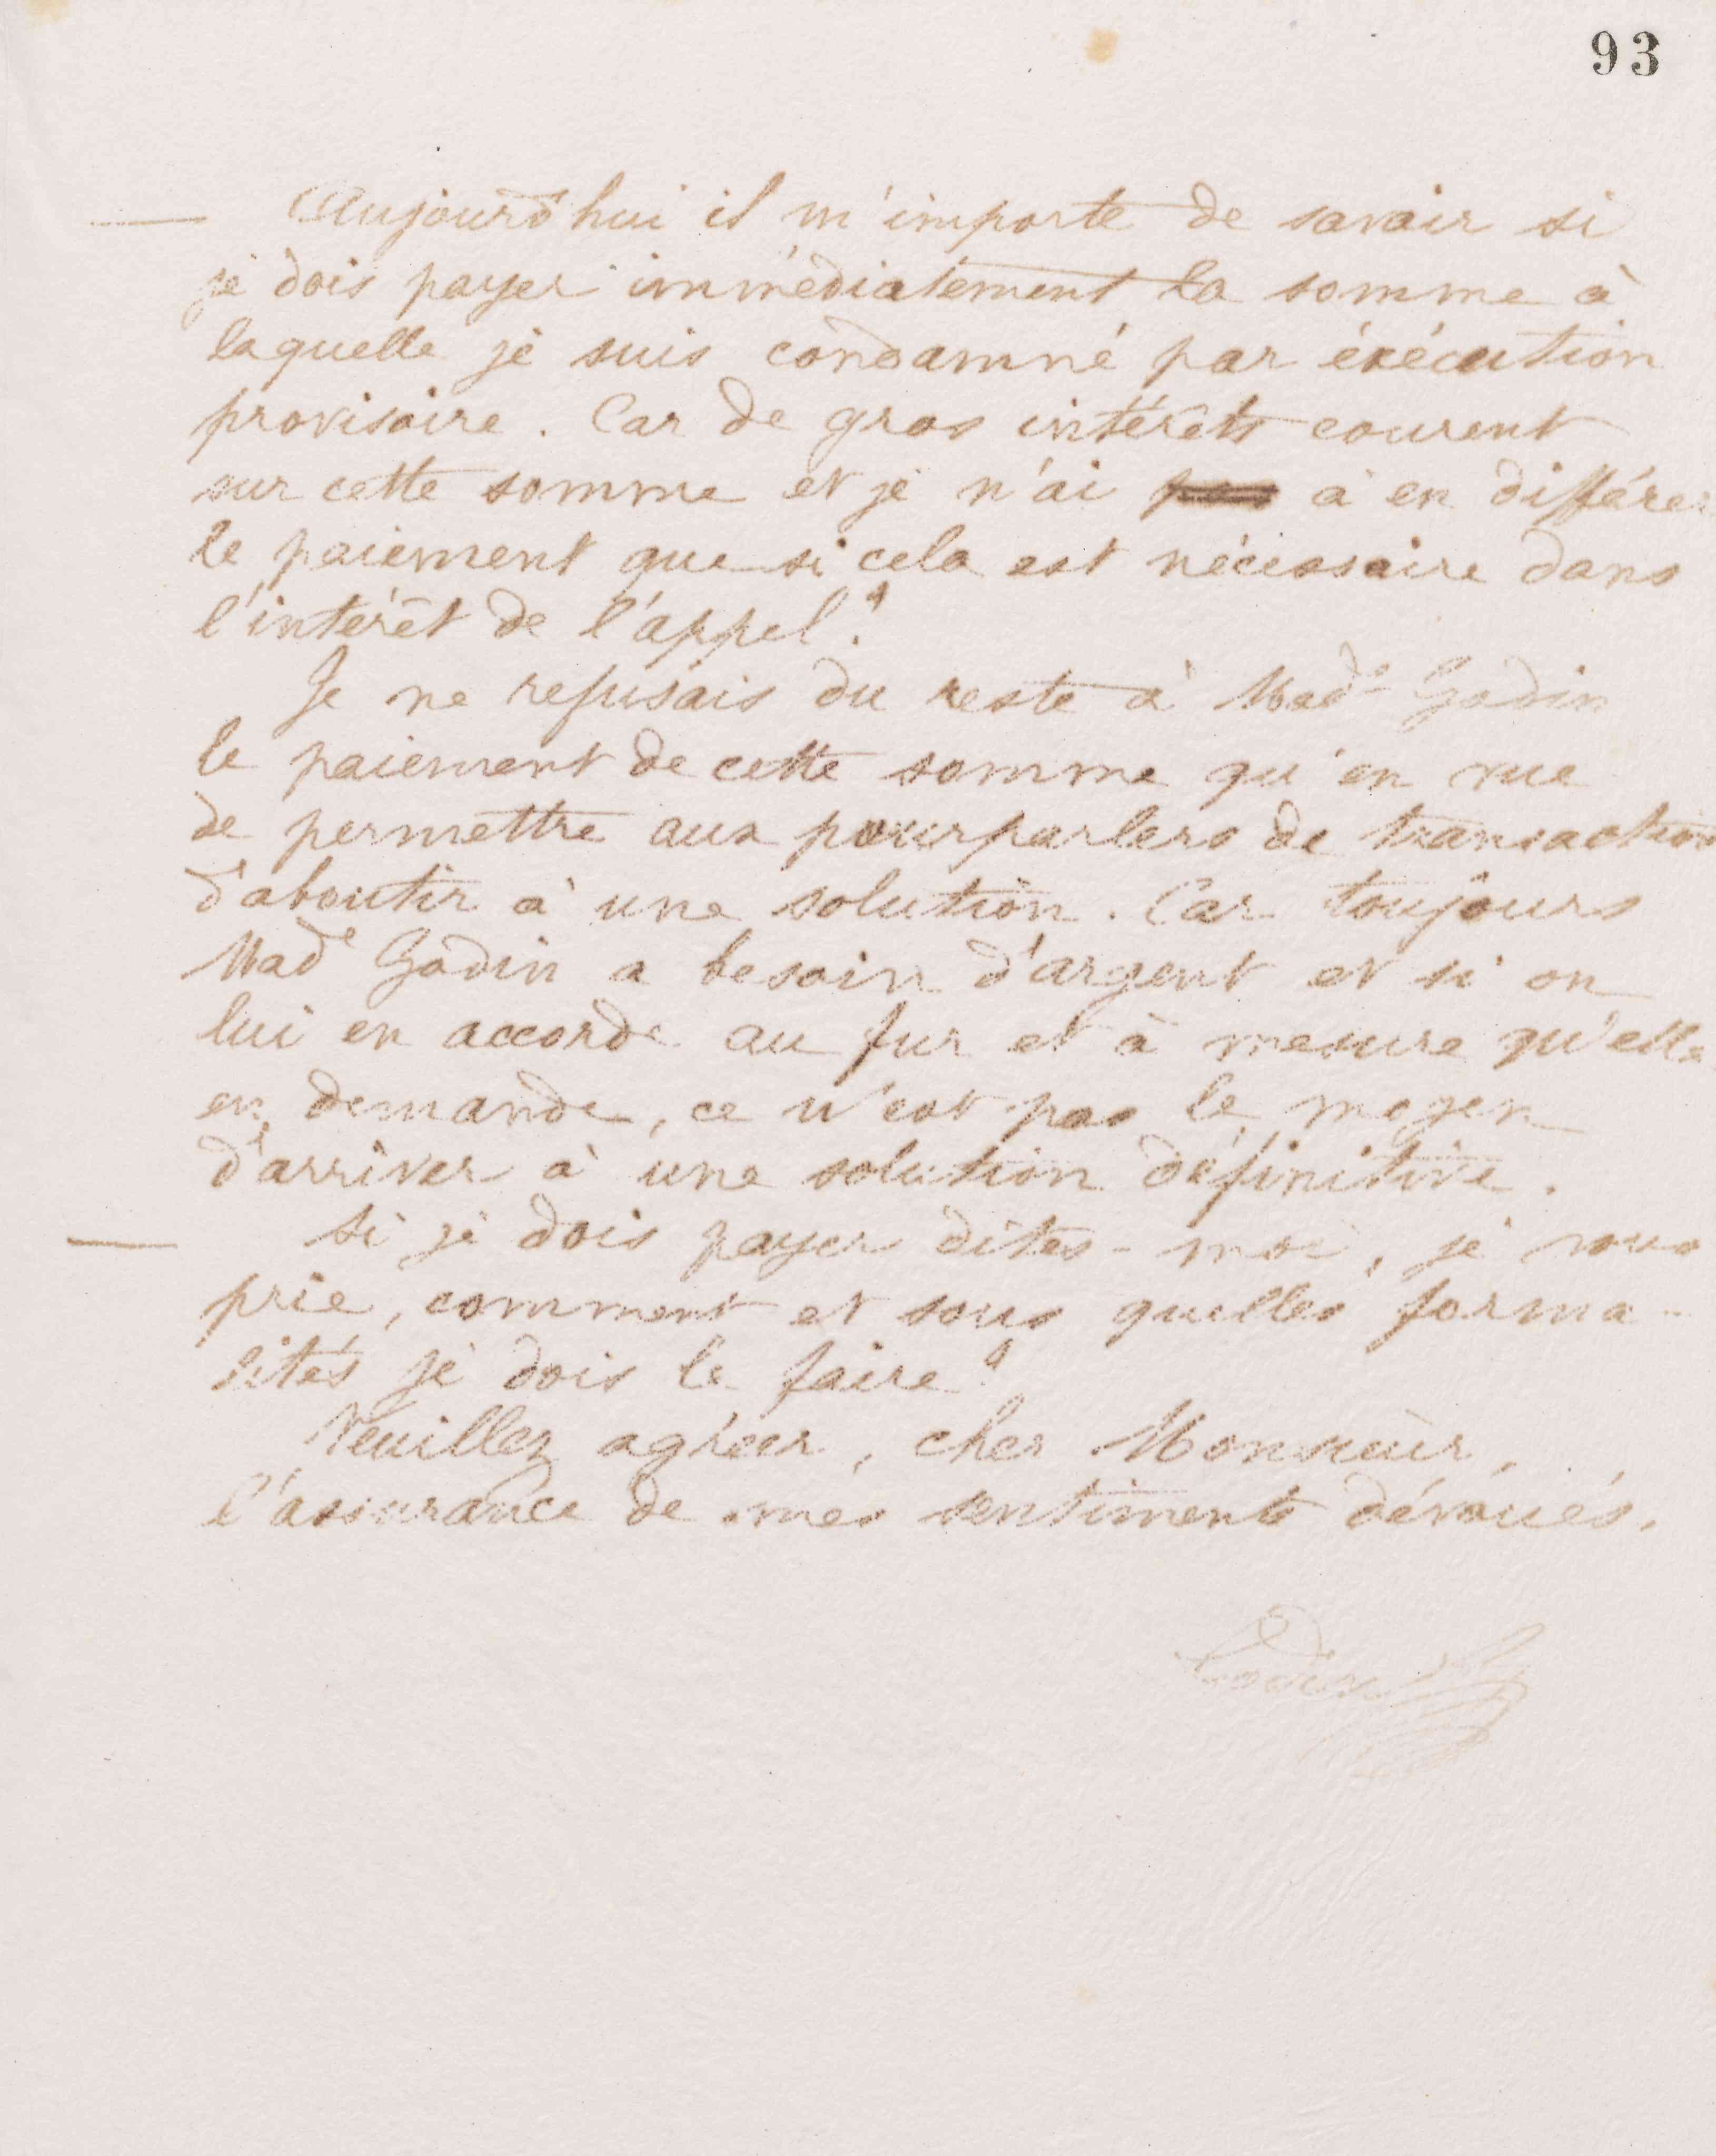 93
— Aujourd'hui il m'importe de savoir si
je dois payer immédiatement la somme à
laquelle je suis condamné par éxécution
provisoire. Car de gros intérêts courent
sur cette somme et je n'ai pas à en différer
le paiement que si cela est nécessaire dans
l'intérêt de l'appel ?
Je ne refusais du reste à Made Godin
le paiement de cette somme qu'en vue
de permettre aux pourparlers de transaction
d'aboutir à une solution. Car toujours
Made Godin a besoin d'argent et si on
lui en accorde au fur et à mesure qu'elle
en demande, ce n'est pas le moyen
d'arriver à une solution définitive.
— Si je dois payer dites-moi, je vous
prie, comment et sous quelles forma-
lités je dois le faire ?
Veuillez agréer, cher Monsieur,
l'assurance de mes sentiments dévoués.
Godin